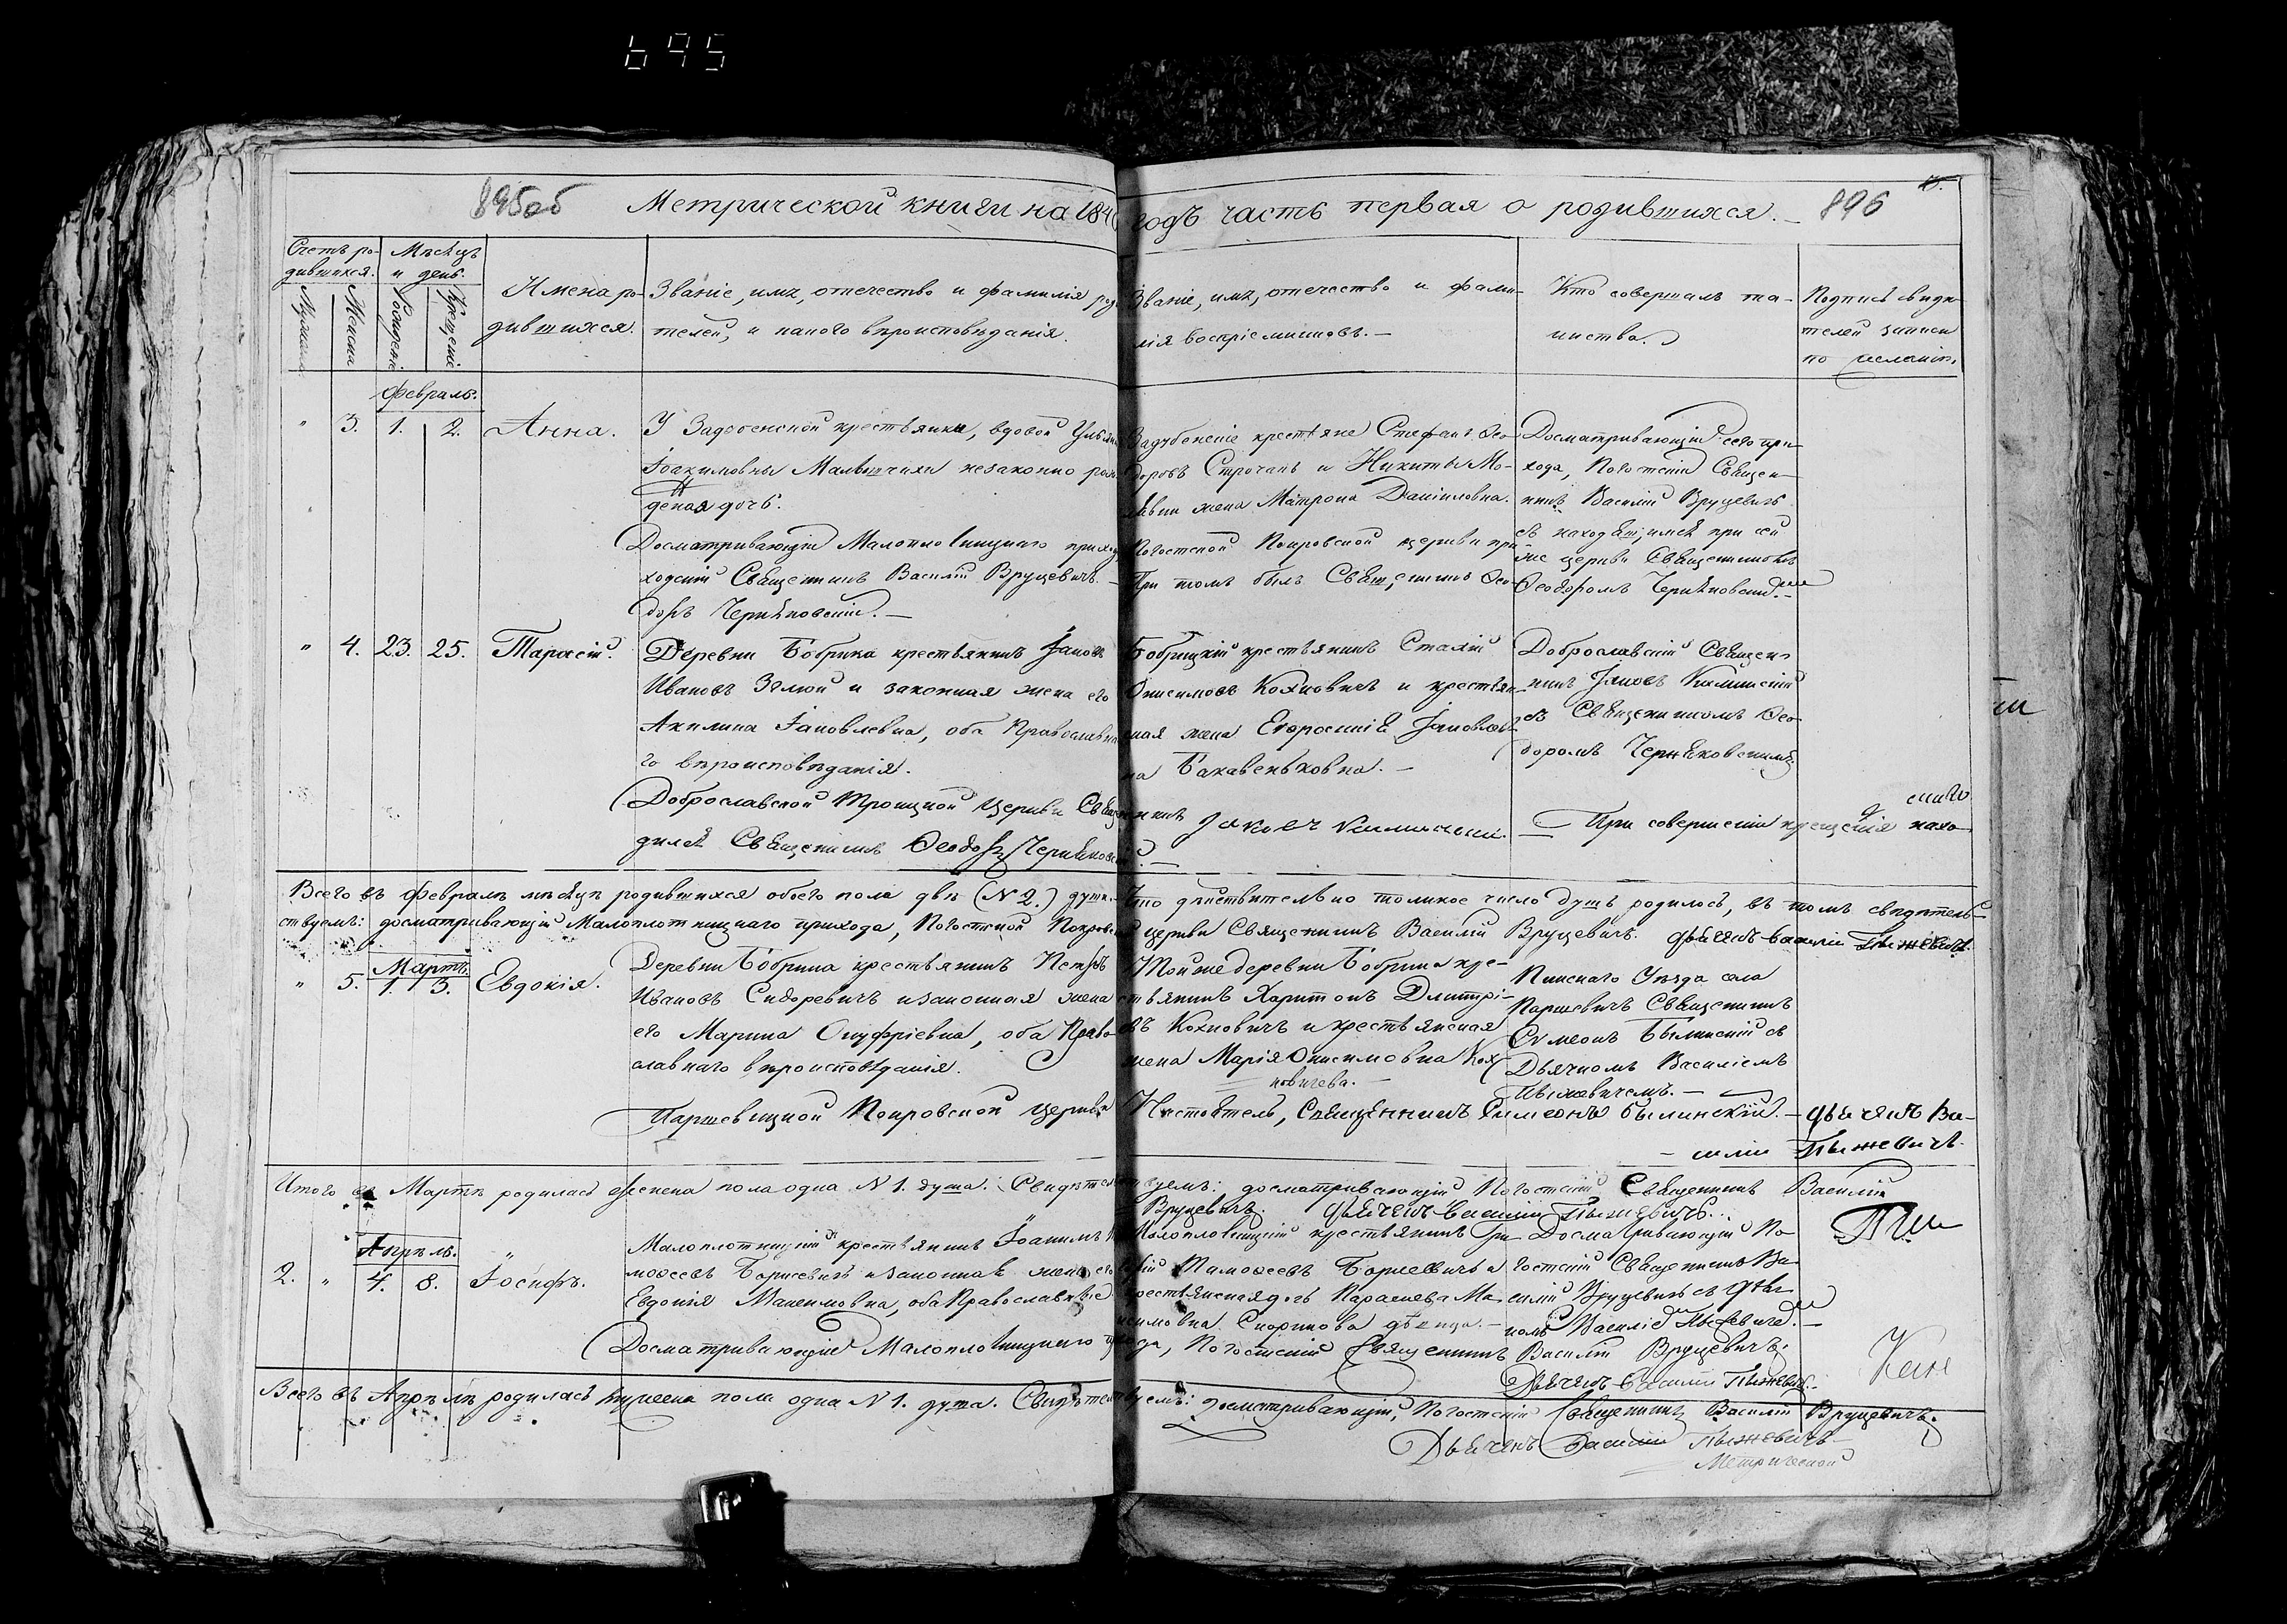 695
895об
Метрической книги на 184
годъ часть первая о родившихся.
896
Счетъ ро-
дившихся.
Мужеска
Женска
Мѣсяцъ
и день.
Рожденія
Крещенія
Имена ро-
дившихся.
Званіе, имя, отечество и фамилія роди
телей, и какого вѣроисповѣданія.
Званіе, имя, отечество и фами-
лія воспріемниковъ.
Кто совершалъ та-
инство.
Подпись свидѣ
телей записи
по желанію.
Февраль.
" 3. 1. 2. Анна.
У крестьянки, вдовой
Іоакимовны незаконно рож
деная дочь.
Досматривающій приход
Священникъ Василій Вруцевичъ.
доръ Черняковскій.
крестьяне Стефанъ Ѳео
доровъ и Никиты
жена Матрона Даніиловна.
Погостской Покровской церкви при
При томъ былъ Священникъ Ѳео
Досматривающій сего при-
хода, Погостскій Священ-
никъ Василій Вруцевичъ
съ находящимся при сей
же церкви Священникомъ
Ѳеодоромъ Черняковским.
" 4. 23. 25. Тарасій.
Деревни Бобрика крестьянинъ Іаковъ
Ивановъ и законная жена его
Акилина Іаковлевна, оба Православна
го вѣроисповѣданія.
Доброславской Троицкой Церкви Священ
дился Священникъ Ѳеодоръ Черняковск
Бобрицкій крестьянинъ
Онисимовъ Кохновичъ и крестьян
ская жена Іаковлев
на
никъ Іаковъ
Доброславскій Священ-
никъ Іаковъ
съ Священникомъ Ѳео
доромъ Черняковскимъ
При совершеніи крещенія нахо
Всего въ Февралѣ мѣсяцѣ родившихся обоего пола двѣ (N 2.) души.
Что дѣйствительно толикое число душъ родилось, въ томъ свидѣтель-
ствуемъ: досматривающій Малоплотницкаго прихода, Погостской Покровс
церкви Священникъ Василій Вруцевичъ. Дьячекъ Василій Пыжевичъ.
Мартъ.
" 5. 1. 3. Евдокія.
Деревни Бобрика крестьянинъ Петръ
Ивановъ Сидоревичъ и законная жена
его Марина Онуфріевна, оба Право
славнаго вѣроисповѣданія.
Паршевицкой Покровской Церкви
Той же деревни Бобрика кре-
стьянинъ Харитонъ Димитрі-
въ Кохновичъ и крестьянская
жена Марія Онисимовна Кох
новичева.
Настоятель, Священникъ Симеонъ Былинскій.
Пинскаго Уѣзда села
Паршевичъ Священникъ
Симеонъ Былинскій съ
Дьячкомъ Василіемъ
Пыжевичемъ.
Дьячекъ Ва-
силій Пыжевичъ.
Итого въ Мартѣ родилась женска пола одна N 1. душа. Свидѣтел
уемъ: досматривающій Погостскій Священникъ Василій
Вруцевичъ. Дьячекъ Василій Пыжевичъ.
Апрѣль.
2. " 4. 8. Іосифъ.
Малоплотницкій крестьянинъ Іоакимъ
моѳеевъ Борисевичъ и законная жена его
Евдокія Максимовна, оба Православные.
Досматривающій Малоплотницкаго при
Малоплотницкій крестьянинъ
Борисевичъ и
крестьянская дочь Параскева Ма
симовна дѣвица.
хода, Погостскій Священникъ Василій Вруцевичъ
Досматривающій По-
гостскій Священникъ Ва-
силій Вруцевичъ съ Дья
комъ Василіе Пыжевиче.
Дьячекъ Василій Пыжевичъ.
Всего въ Апрѣлѣ родилась мужеска пола одна N 1. душа. Свидѣтел
вуемъ: досматривающій, Погостскій Священникъ Василій Вруцевичъ.
Дьячекъ Василій Пыжевичъ
Метрической